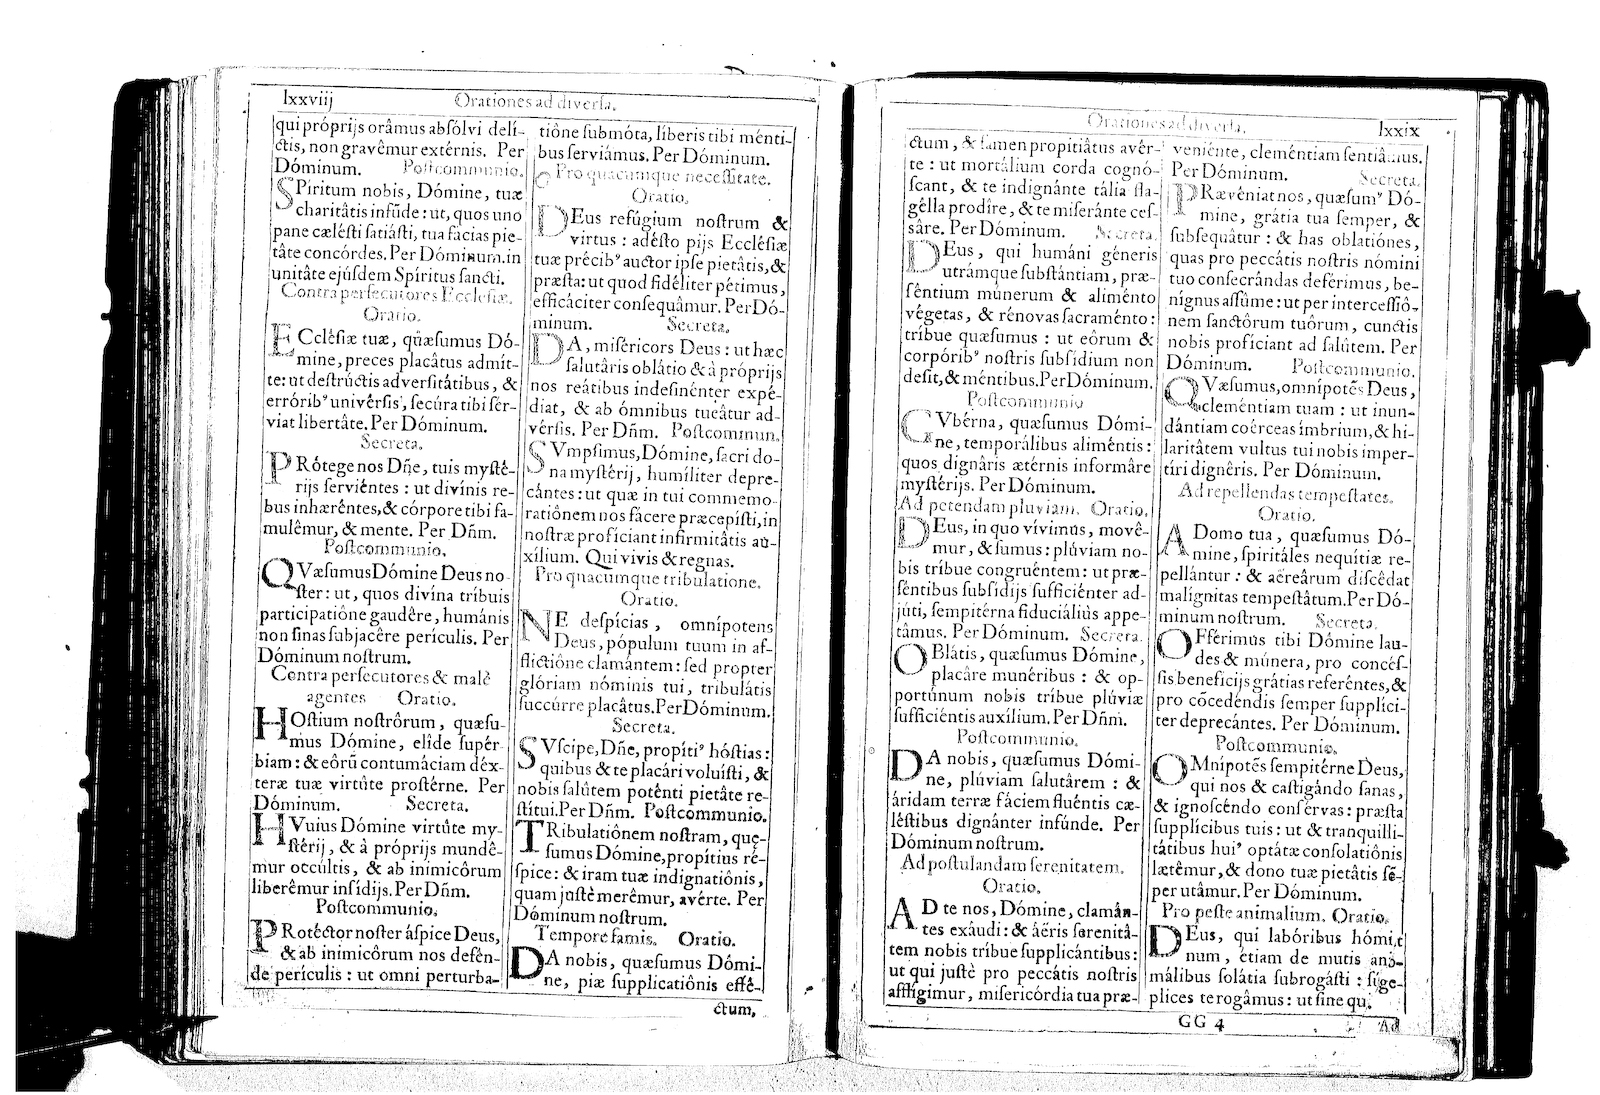 lxxviij
Orationes ad diversa.
qui próprijs orâmus absólvi delí-
ctis, non gravêmur extérnis. Per
Dóminum. Postcommunio.
SPíritum nobis, Dómine, tuæ
charitâtis infúde: ut, quos uno
pane cælésti satiásti, tua fácias pie-
tâte concórdes. Per Dóminum. in
unitâte ejúsdem Spíritus sancti.
Contra persecutores Ecclesiæ.
Oratio.
ECclésiæ tuæ, qûæsumus Dó-
mine, preces placâtus admít-
te: ut destrúctis adversitâtibus, &
errórib' univérsis, secúra tibi sér-
viat libertâte. Per Dóminum.
Secreta.
PRótege nos Dñe, tuis mysté-
rijs serviéntes: ut divínis re-
bus inhæréntes, & córpore tibi fa-
mulêmur, & mente. Per Dñm.
Postcommunio.
QVæsumus Dómine Deus no-
ster: ut, quos divína tríbuis
participatiône gaudêre, humánis
non sinas subjacêre perículis. Per
Dóminum nostrum.
Contra persecutores & malè
agentes Oratio.
HOstium nostrôrum, quæsu-
mus Dómine, elíde supér-
biam: & eôrũ contumáciam déx-
teræ tuæ virtûte prostérne. Per
Dóminum. Secreta.
HVuius Dómine virtûte my-
stérij, & à próprijs mundê-
mur occúltis, & ab inimicôrum
liberêmur insídijs. Per Dñm.
Postcommunio.
PRotéctor noster áspice Deus,
& ab inimicôrum nos defén-
de perículis: ut omni perturba-
tiône submóta, líberis tibi ménti-
bus serviámus. Per Dóminum.
Pro quacumque necessitate.
Oratio.
DEus refúgium nostrum &
virtus: adésto pijs Ecclésiæ
tuæ précib' auctor ipse pietâtis, &
præsta: ut quod fidéliter pétimus,
efficáciter consequâmur. Per Dó-
minum. Secreta.
DA, miséricors Deus: ut hæc
salutâris oblátio & à próprijs
nos reátibus indesinénter expé-
diat, & ab ómnibus tueátur ad-
vérsis. Per Dñm. Postcommun.
SVmpsimus, Dómine, sacri do-
na mystérij, humíliter depre-
cántes: ut quæ in tui commemo-
ratiônem nos fácere præcepísti, in
nostræ profíciant infirmitâtis au-
xílium. Qui vivis & regnas.
Pro quacumque tribulatione.
Oratio.
NE despícias, omnípotens
Deus, pópulum tuum in af-
flictiône clamántem: sed propter
glóriam nóminis tui, tribulátis
succúrre placâtus. Per Dóminum.
Secreta.
SVscipe, Dñe, propíti' hóstias:
quibus & te placári voluísti, &
nobis salûtem poténti pietâte re-
stítui. Per Dñm. Postcommunio.
TRibulatiônem nostram, quę-
sumus Dómine, propítius ré-
spice: & iram tuæ indignatiônis,
quam justè merêmur, avérte. Per
Dóminum nostrum.
Tempore famis. Oratio.
DA nobis, quæsumus Dómi-
ne, piæ supplicatiônis effé-
ctum,
Orationes ad diversa.
lxxix
ctum, & famen propitiâtus avér-
te: ut mortálium corda cognó-
scant, & te indignánte tália fla-
gélla prodíre, & te miseránte ces-
sáre. Per Dóminum. Secreta.
DEus, qui humáni géneris
utrámque substántiam, præ-
séntium múnerum & aliménto
végetas, & rénovas sacraménto:
tríbue quæsumus: ut eôrum &
corpórib' nostris subsídium non
desit, & méntibus. Per Dóminum.
Postcommunio
GVbérna, quæsumus Dómi-
ne, temporálibus aliméntis:
quos dignâris ætérnis informâre
mystérijs. Per Dóminum.
Ad petendam pluviam. Oratio.
DEus, in quo vívimus, movê-
mur, & sumus: plúviam no-
bis tríbue congruéntem: ut præ-
séntibus subsídijs sufficiénter ad-
júti, sempitérna fiduciáliùs appe-
tâmus. Per Dóminum. Secreta.
OBlátis, quæsumus Dómine,
placâre munéribus: & op-
portúnum nobis tríbue plúviæ
sufficiéntis auxílium. Per Dñm.
Postcommunio.
DA nobis, quæsumus Dómi-
ne, plúviam salutârem: &
áridam terræ fáciem fluéntis cæ-
léstibus dignánter infúnde. Per
Dóminum nostrum.
Ad postulandam serenitatem.
Oratio.
AD te nos, Dómine, clamán-
tes exáudi: & áëris serenitâ-
tem nobis tríbue supplicántibus:
ut qui justè pro peccátis nostris
afflígimur, misericórdia tua præ-
veniénte, cleméntiam sentiâmus.
Per Dóminum. Secreta.
PRævéniat nos, quæsum' Dó-
mine, grátia tua semper, &
subsequâtur: & has oblatiónes,
quas pro peccátis nostris nómini
tuo consecrándas deférimus, be-
nígnus assúme: ut per intercessiô-
nem sanctôrum tuôrum, cunctis
nobis profíciant ad salûtem. Per
Dóminum. Postcommunio.
QVæsumus, omnípotẽs Deus,
cleméntiam tuam: ut inun-
dántiam coérceas ímbrium, & hi-
laritâtem vultus tui nobis imper-
tíri dignêris. Per Dóminum.
Ad repellendas tempestates.
Oratio.
A Domo tua, quæsumus Dó-
mine, spiritáles nequítiæ re-
pellántur: & aëreârum discédat
malígnitas tempestâtum. Per Dó-
minum nostrum. Secreta.
OFférimus tibi Dómine lau-
des & múnera, pro concés-
sis benefícijs grátias referéntes, &
pro cõcedéndis semper supplíci-
ter deprecántes. Per Dóminum.
Postcommunio.
OMnípotẽs sempitérne Deus,
qui nos & castigándo sanas,
& ignoscéndo consérvas: præsta
supplícibus tuis: ut & tranquilli-
tátibus hui' optátæ consolatiônis
lætêmur, & dono tuæ pietâtis sẽ-
per utâmur. Per Dóminum.
Pro peste animalium. Oratio.
DEus, qui labóribus hómi-
num, étiam de mutis ani-
málibus solátia subrogásti: súp-
plices te rogâmus: ut sine qui-
GG 4
Ad